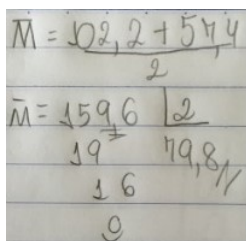 M̅ = 102,2 + 57,4
2
M̅ = 159,6 | 2
19 79,8//
16
0